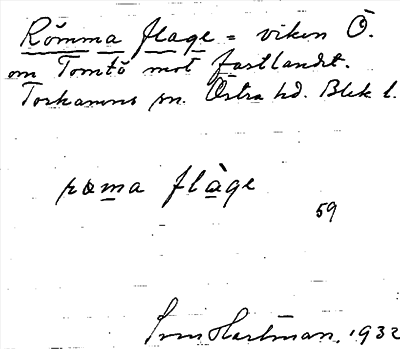 Römma flage = viken Ö.
om Tomtö mot fastlandet.
Torhamns sn. Östra hd. Blek. l.
røma flàge
59
Sven Hartman, 1932